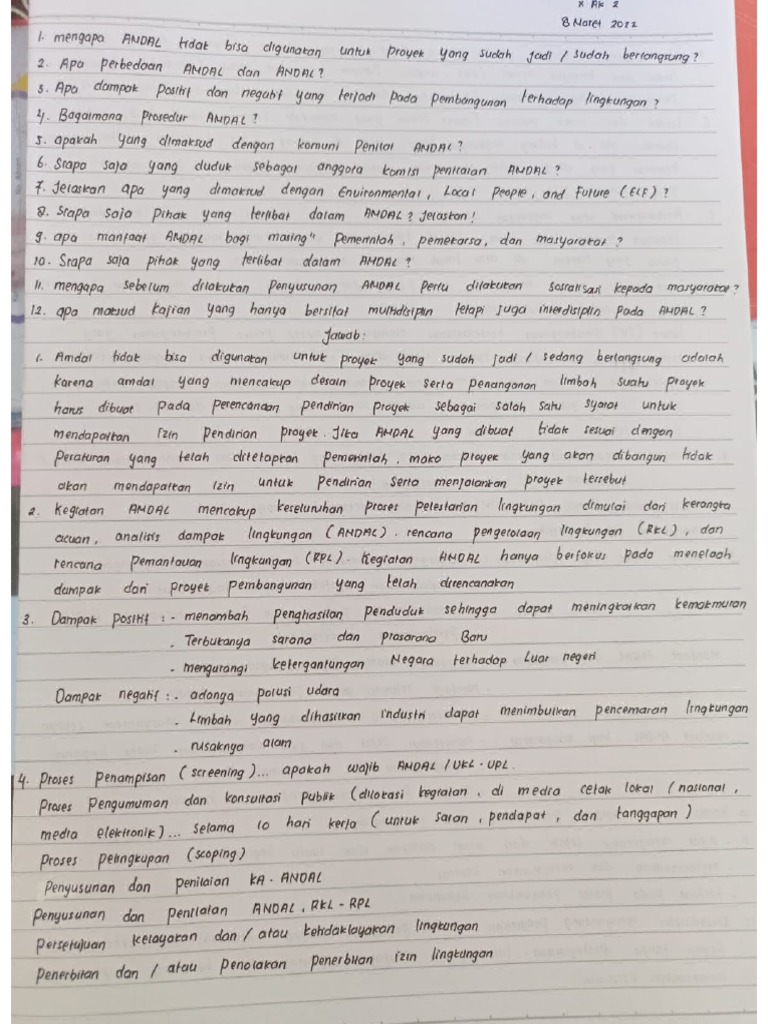 X AK 2
8 Maret 2022
1. mengapa AMDAL tidak bisa digunakan untuk proyek yang sudah jadi / sudah berlangsung?
2. Apa Perbedaan AMDAL dan ANDAL?
3. Apa dampak positif dan negatif yang terjadi pada pembangunan terhadap lingkungan?
4. Bagaimana Prosedur AMDAL?
5. apakah yang dimaksud dengan komuni Penilai AMDAL?
6. Siapa saja yang duduk sebagai anggota komisi penilaian AMDAL?
7. Jelaskan apa yang dimaksud dengan Environmental, Local People, and Future (ELF)?
8. Siapa Saja Pihak yang terlibat dalam AMDAL? Jelaskan!
9. apa manfaat AMDAL bagi masing" Pemerintah, pemekarsa, dan masyarakat?
10. Siapa saja pihak yang terlibat dalam AMDAL?
11. mengapa sebelum dilakukan Penyusunan AMDAL Perlu dilakukan Sosialisasi kepada masyarakat?
12. apa maksud kajian yang hanya bersifat multidisiplin tetapi juga interdisiplin pada AMDAL?
Jawab:
1. Amdal tidak bisa digunakan untuk proyek yang sudah jadi / sedang berlangsung adalah
karena amdal yang mencakup desain Proyek serta penanganan limbah suatu Proyek
harus dibuat pada perencanaan pendirian proyek sebagai salah satu syarat untuk
mendapatkan Izin Pendirian proyek. Jika AMDAL yang dibuat tidak sesuai dengan
Peraturan yang telah ditetapkan Pemerintah, maka proyek yang akan dibangun tidak
akan mendapatkan izin untuk Pendirian serta menjalankan proyek tersebut
2. Kegiatan AMDAL mencakup keseluruhan proses pelestarian lingkungan dimulai dari kerangka
acuan, analisis dampak lingkungan (ANDAL). rencana pengelolaan lingkungan (RKL), dan
rencana Pemantauan lingkungan (RPL). Kegiatan ANDAL hanya berfokus pada menelaah
dampak dari proyek pembangunan yang telah direncanakan
3. Dampak positif : - menambah penghasilan penduduk sehingga dapat meningkatkan kemakmuran
- Terbukanya sarana dan prasarana Baru
- mengurangi ketergantungan Negara terhadap Luar negeri
Dampak negatif : - adanya polusi udara
- Limbah yang dihasilkan industri dapat menimbulkan pencemaran lingkungan
- rusaknya alam
4. Proses Penampisan (screening)... apakah wajib AMDAL / UKL - UPL.
Proses Pengumuman dan konsultasi publik (dilokasi kegiatan, di media cetak lokal / nasional,
media elektronik)... selama 10 hari kerja (untuk saran, pendapat, dan tanggapan)
Proses pelingkupan (scoping)
Penyusunan dan penilaian KA - ANDAL
Penyusunan dan Penilaian ANDAL, RKL - RPL
Persetujuan kelayakan dan / atau ketidaklayakan lingkungan
Penerbitan dan / atau Penolakan penerbitan izin lingkungan